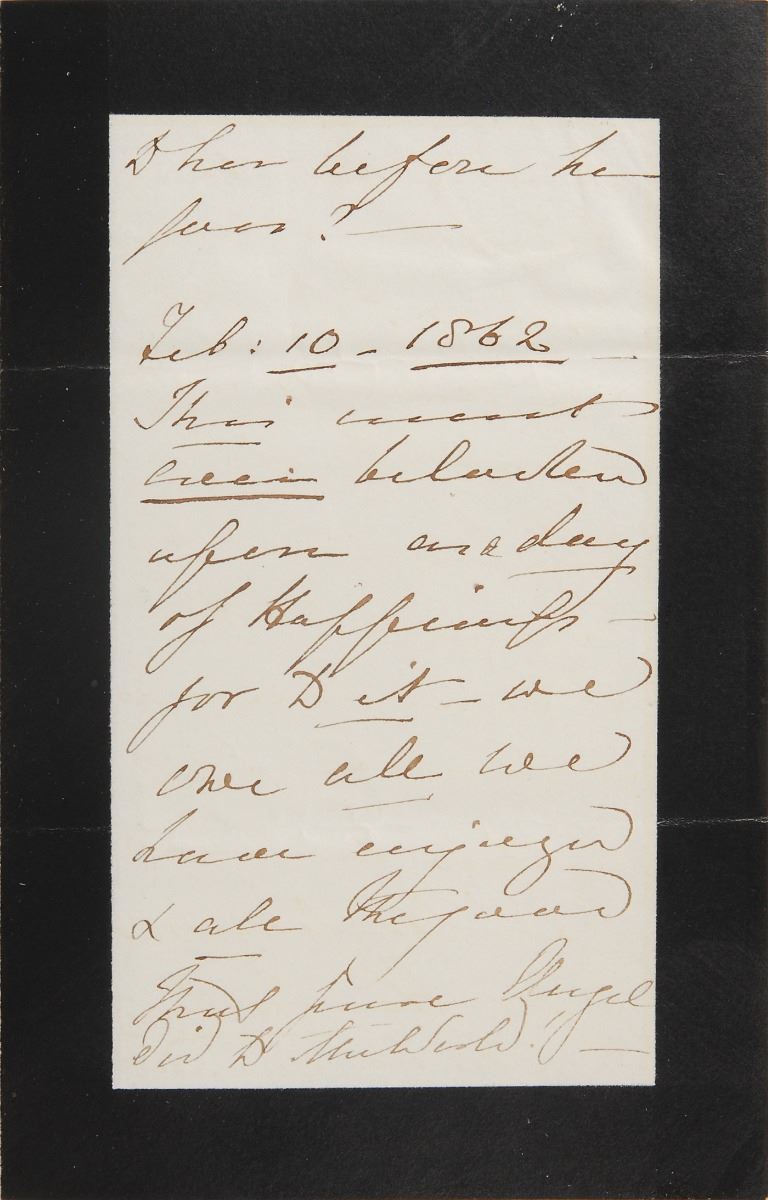 to her before he
goes? —
Feb: 10 - 1862 —
This must
ever be looked
upon as a day
of Happiness —
for to it — we
owe all we
have enjoyed
& all the good
that pure Angel
did to the World! —